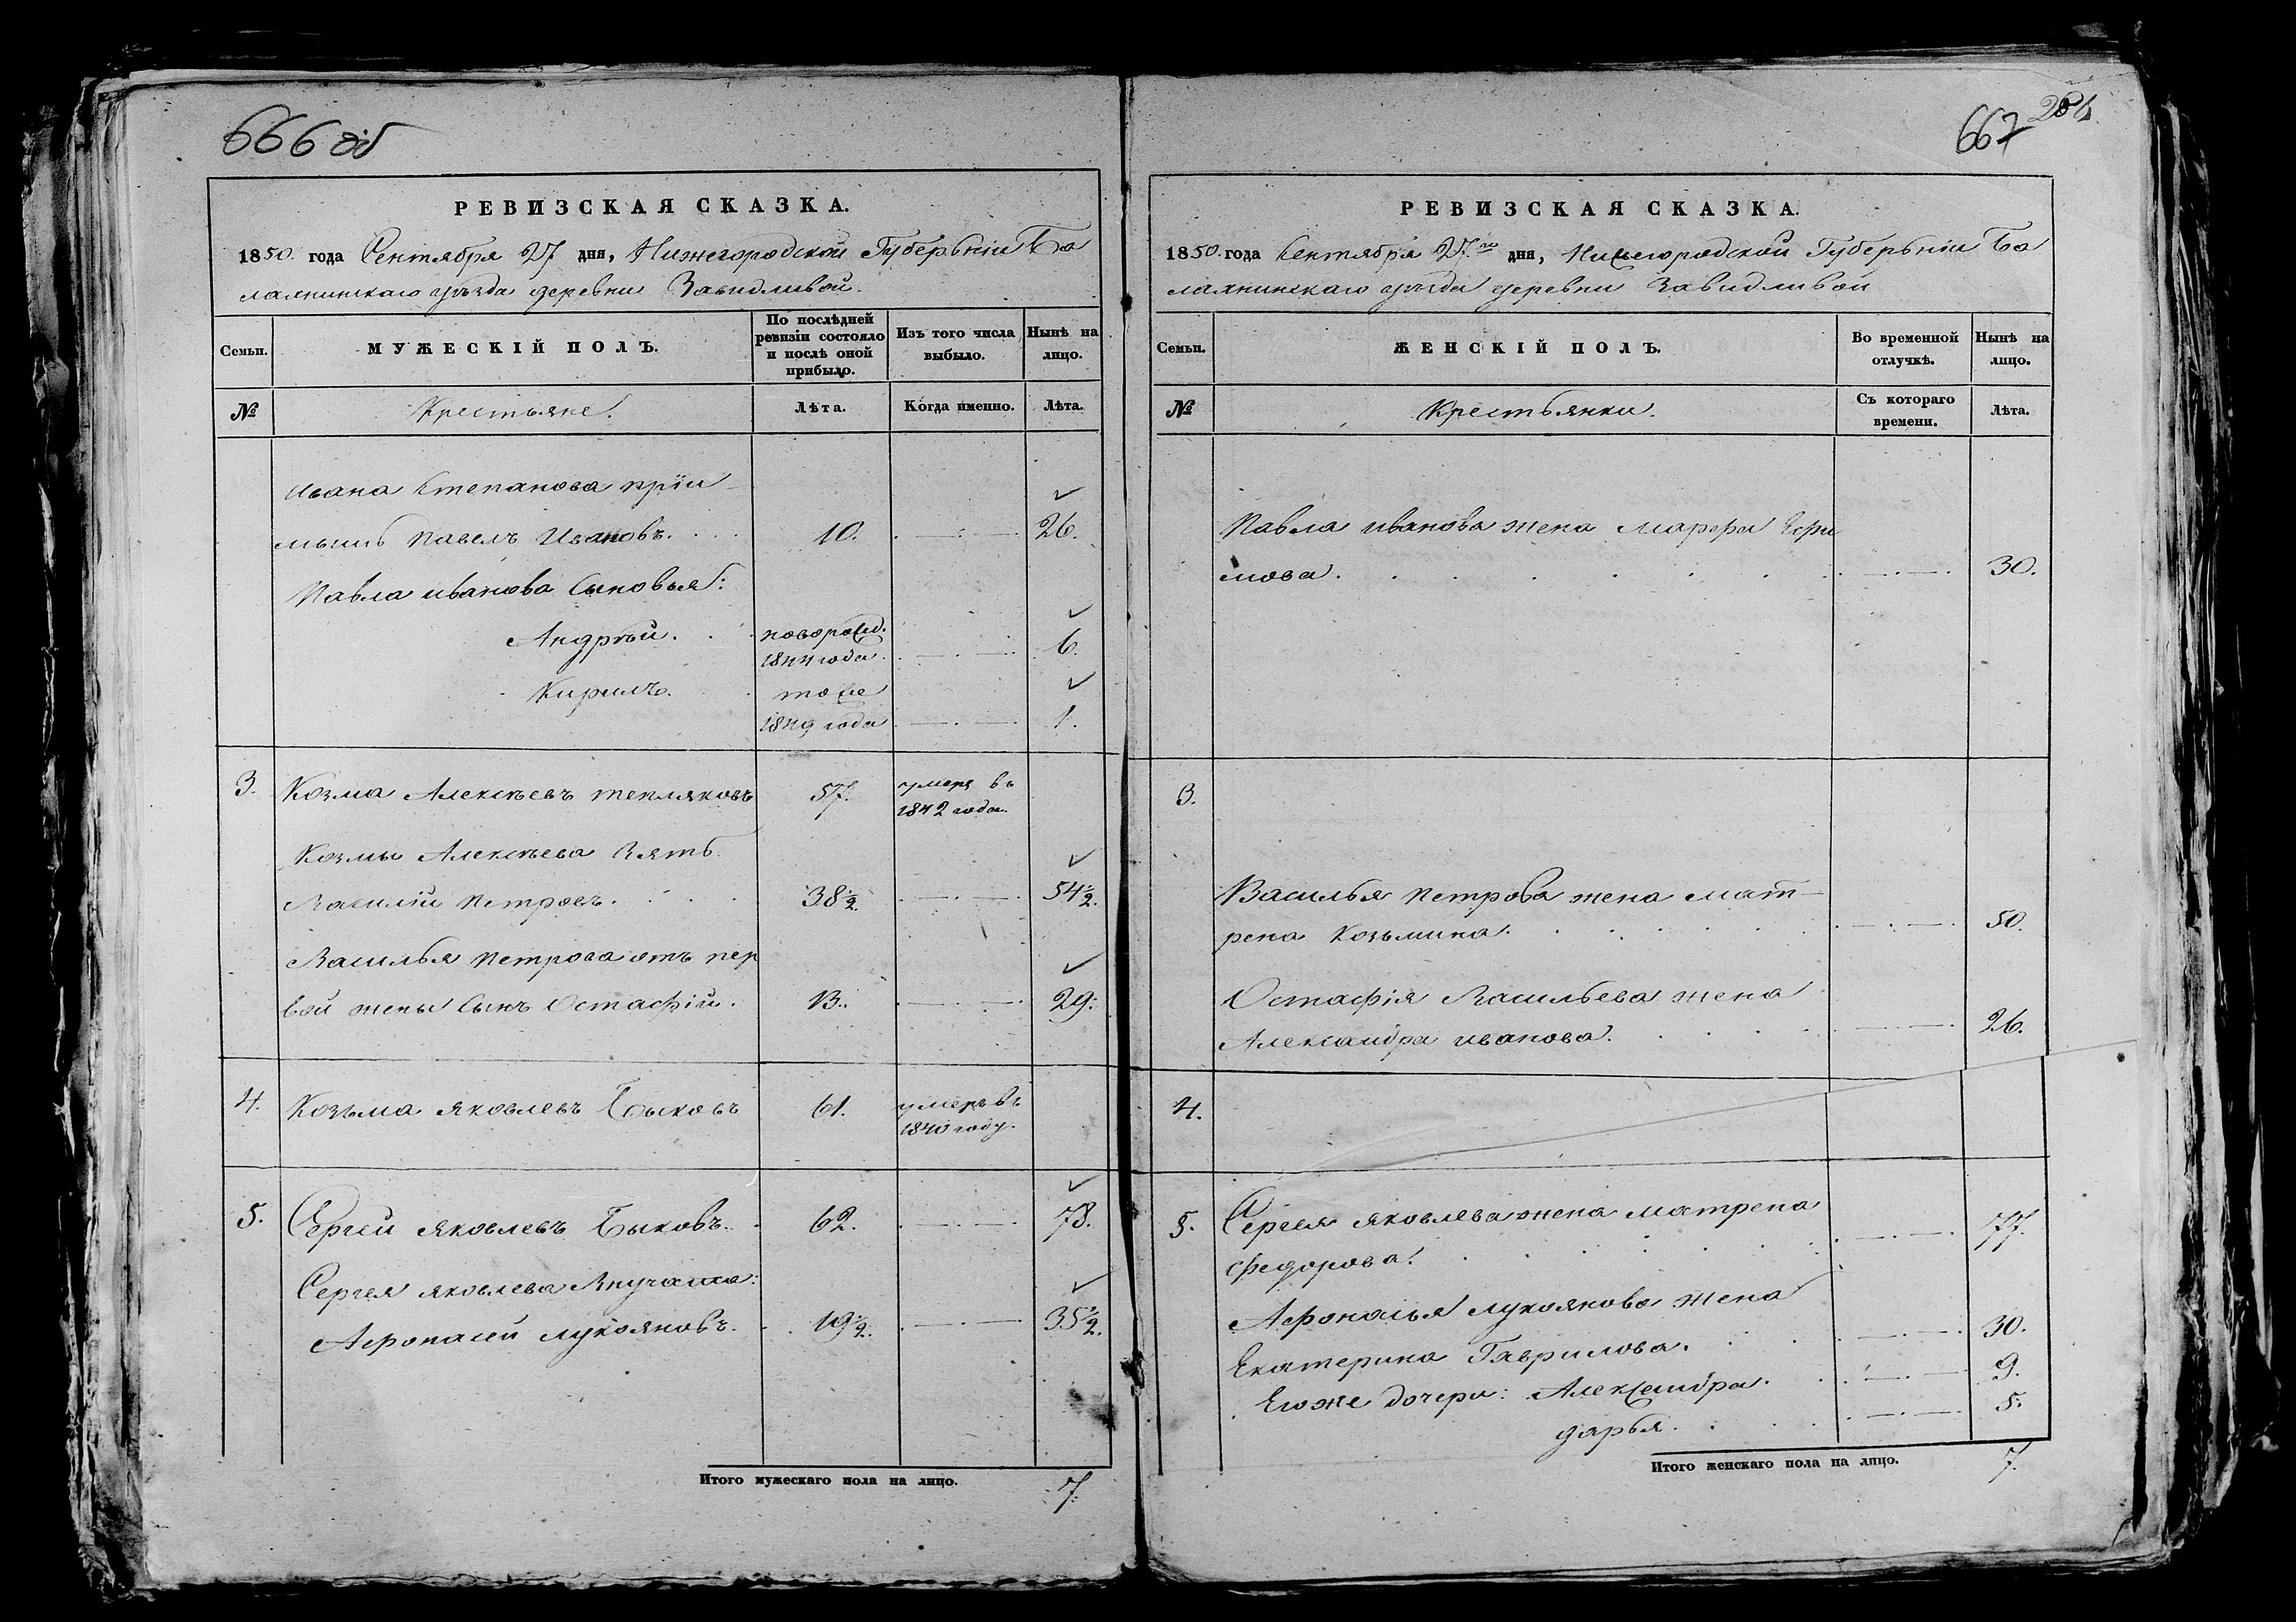 666 об
РЕВИЗСКАЯ СКАЗКА.
1850. года Сентября 27 дня, Нижегородской Губерьніи Ба
лахнинскаго уѣзда деревни Завидливой.
Семьи.
МУЖЕСКІЙ ПОЛЪ.
По послѣдней ревизіи состояло и послѣ оной прибыло.
Изъ того числа выбыло.
Нынѣ на лицо.
№
Крестьяне.
Лѣта.
Когда именно.
Лѣта.
Ивана Степанова прій
мышъ Павелъ Ивановъ. 10. 26.
Павла иванова Сыновья:
Андрѣй. новорожд. 6.
1844 года
Кирилъ. тоже
1849 года 1.
3. Козма Алексѣевъ тепляковъ 57. умеръ въ
1842 года.
Козмы Алексѣева Зять
Василій Петровъ. 38 1/2. 54 1/2.
Василья Петрова отъ пер
вой жены Сынъ Остафій. 13. 29.
4. Козьма Яковлевъ Быковъ 61. умеръ въ
1840 году.
5. Сергѣй Яковлевъ Быковъ. 62. 78.
Сергея яковлева Внучата:
Афонасей лукояновъ. 19 1/2. 35 1/2.
Итого мужескаго пола на лицо. 7.
667
РЕВИЗСКАЯ СКАЗКА.
1850. года Сентября 27го дня, Нижегородской Губерьніи Ба
лахнинскаго уѣзда деревни Завидливой
Семьи.
ЖЕНСКІЙ ПОЛЪ.
Во временной отлучкѣ.
Нынѣ на лицо.
№
Крестьянки.
Съ котораго времени.
Лѣта.
Павла иванова жена марфа Ефи
мова. 30.
3.
Василья Петрова жена мат-
рена Козьмина. 50.
Остафія Васильева жена
Александра иванова. 26.
4.
5. Сергея яковлева жена матрена
Федорова. 77.
Афонасья лукоянова жена
Екатерина Гаврилова. 30.
Егоже дочери: Александра. 9.
дарья. 5.
Итого женскаго пола на лицо. 7.